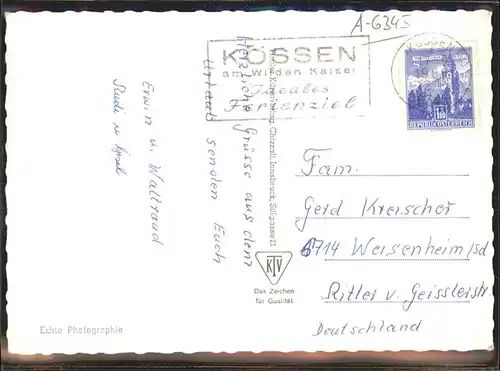 A-6345
KÖSSEN
am Wilden Kaiser
Ideales
Ferienziel
KÖSSEN
REPUBLIK ÖSTERREICH
Herzliche Grüsse aus dem
Urlaub senden Euch
Erwin u. Waltraud
Rudi u.
Chizzali, Innsbruck, Sillgasse 21
KTV
Das Zeichen
für Qualität
Fam.
Gerd Kreischer
6714 Weisenheim/Sd
Ritter v. Geisslerstr
Deutschland
Echte Photographie